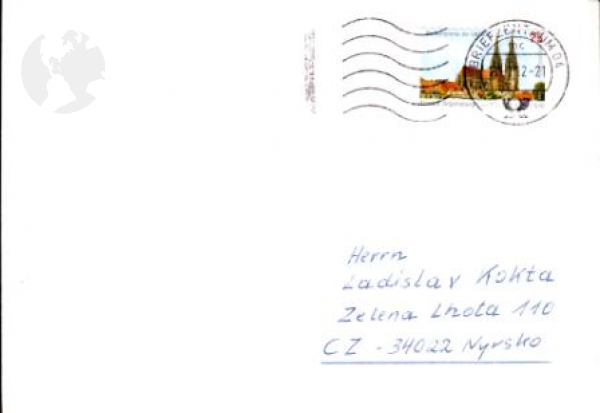 BRIEFZENTRUM 04
Herrn
Ladislav Kokta
Zelena Lhota 110
CZ - 34022 Nyrsko